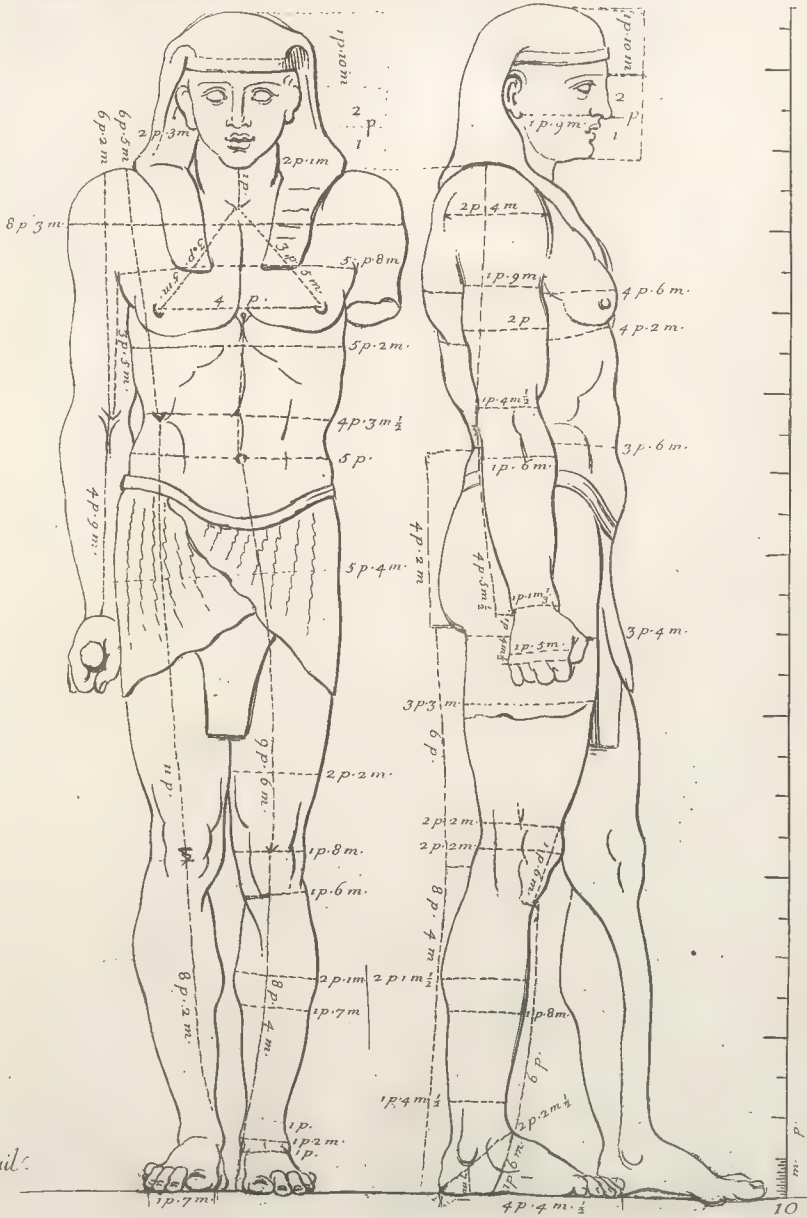 1p.10m
2
p.
1
2p.3m
2p.1m
6p.5m
6p.2m
1p.
8p.3m.
3.p.5m
3.p.5m.
5.p.8m
4 p.
5p.2m.
3p.5m.
4p.3m½
5p.
4p.9m.
5p.4m.
11p.
9p.6m.
2p.2m.
1p.8m.
1p.6m.
2p.1m
8p.2m.
8p.4m.
1p.7m
1p.
1p.2m.
1p.
1p.7m
1p.10m
2
p.
1
1p.9m.
2p.4m
1p.9m.
4p.6m.
2p
4p.2m.
1p.4m½
3p.6m.
1p.6m.
4p.2m
4p.5m½
1p.5m.
3p.4m.
3p.3m
6p.
2p.2m
2p.2m
1p.6m.
8p.4m
2p1m½
1p.8m.
1p.4m½
2p.2m½
4p.4m.½
10